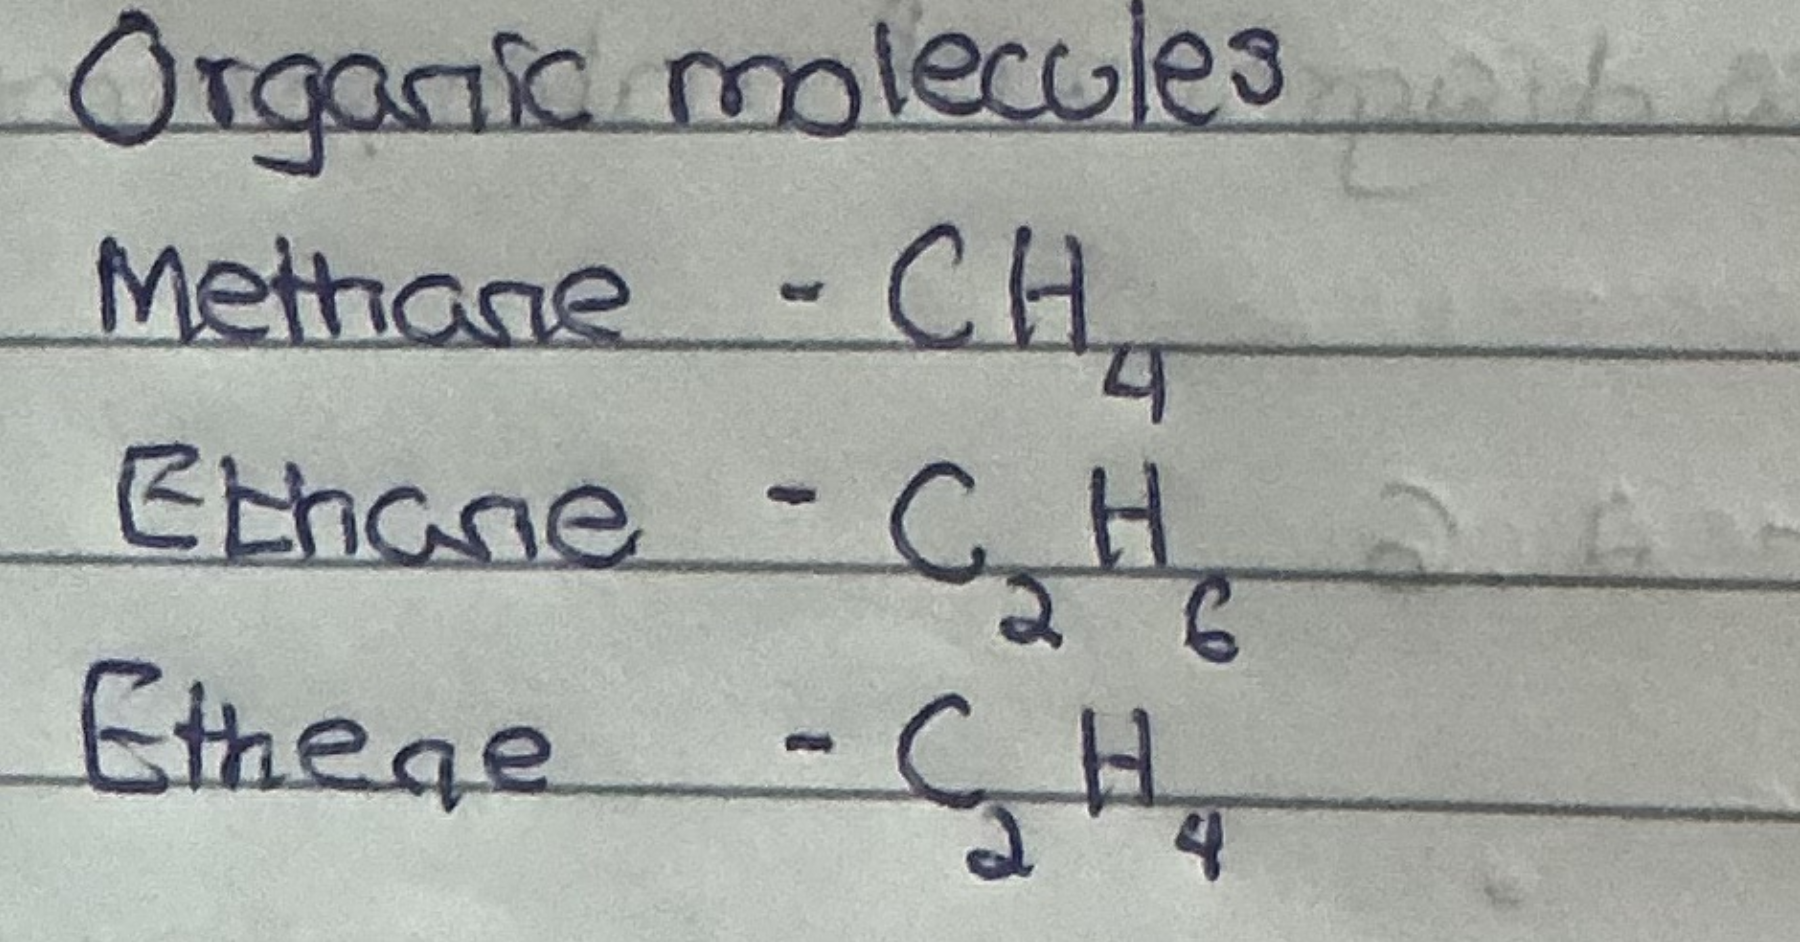 Organic molecules
Methane - CH₄
Ethane - C₂H₆
Ethene - C₂H₄